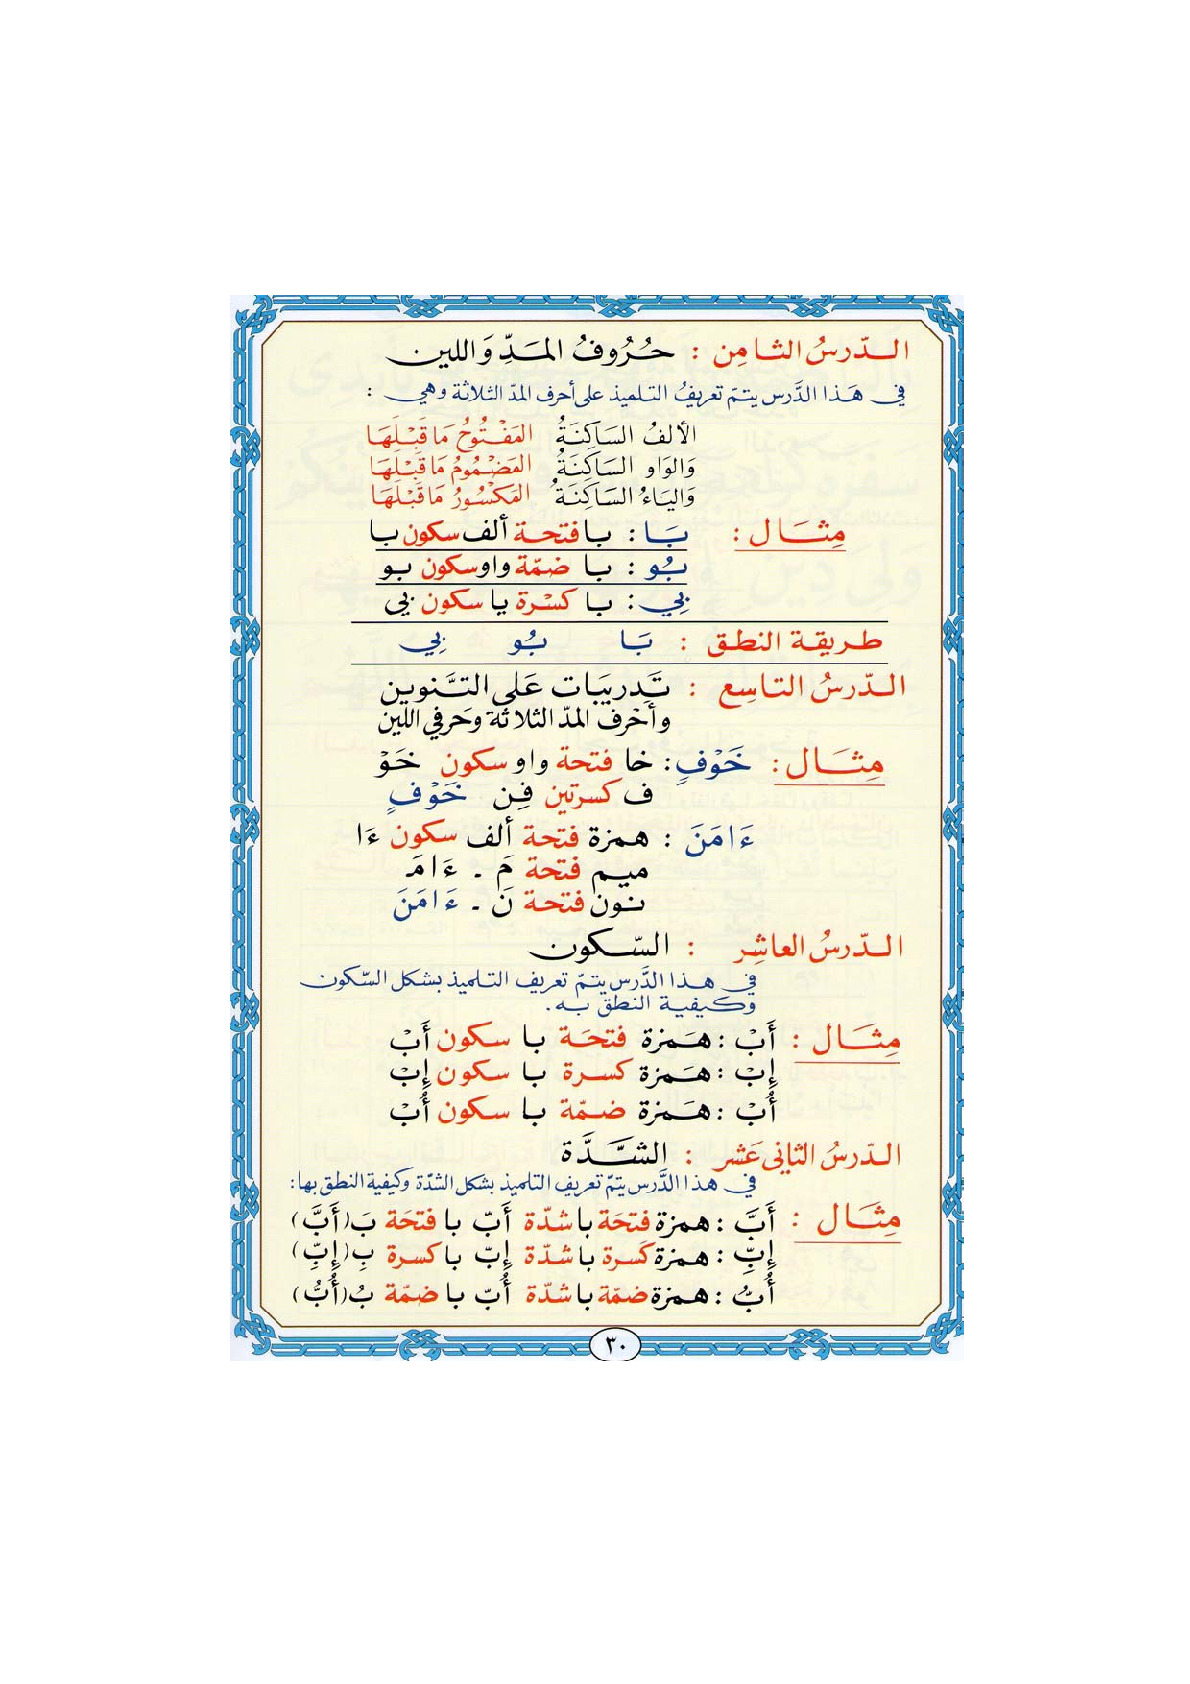 الـدّرسُ الثـامِن : حُرُوفُ المَـدِّ وَ اللين
في هَـذا الدَّرس يتمّ تعريفُ التـلميذ على أحرف المدّ الثلاثة وهي :
الألفُ السَاكِنَةُ المَفْتُوحُ مَا قَبْلِهَا
وَالوَاو السَاكِنَةُ المَضْمُومُ مَا قَبْلِهَا
وَاليَاءُ السَاكِنَةُ المَكْسُورُ مَا قَبْلَهَا
مِثـَـال : بَـا : بـا فتحـة ألف سكون بـا
بُـو : بـا ضمّة واو سكون بـو
بِي : بـا كسْرة يا سكون بي
طـريقـة النطـق : بَـا بُـو بِي
الـدّرسُ التـاسِع : تَدرِيبَات عَلى التـَّنوين
وأحْرف المدّ الثلاثة وحَرفي اللين
مِثـَـال : خَوْفٍ : خا فتحة واو سكون خَوْ
ف كسرتين فِـن خَوْفٍ
ءَامَنَ : همزة فتحة ألف سكون ءَا
ميـم فتحة مَ ـ ءَامَـ
نـون فتحـة نَ ـ ءَامَنَ
الـدّرسُ العاشِر : السّـكون
في هـذا الدَّرس يتـمّ تعريف التـلميذ بشكل السّكون
وكـيفيـة النطق بـه .
مِثـَـال : أَبْ : هَـمزة فتحَـة بـا سكون أَبْ
إِبْ : هَـمزة كسـرة بـا سكون إِبْ
أُبْ : هَـمزة ضـمّة بـا سكون أُبْ
الـدّرسُ الثانى عَشر : الشـَّـدَّة
في هـذا الدَّرس يتمّ تعريف التلميذ بشكل الشدّة وكيفية النطق بها :
مِثـَـال : أَبَّ : همزة فتحَة با شدّة أَبّ با فتحَة بَ (أَبَّ)
إِبِّ : همزة كَسرة با شدّة إِبّ با كسرة بِ (إِبِّ)
أُبُّ : همزة ضمّة با شدّة أُبّ با ضمّة بُ (أُبُّ)
٣٠